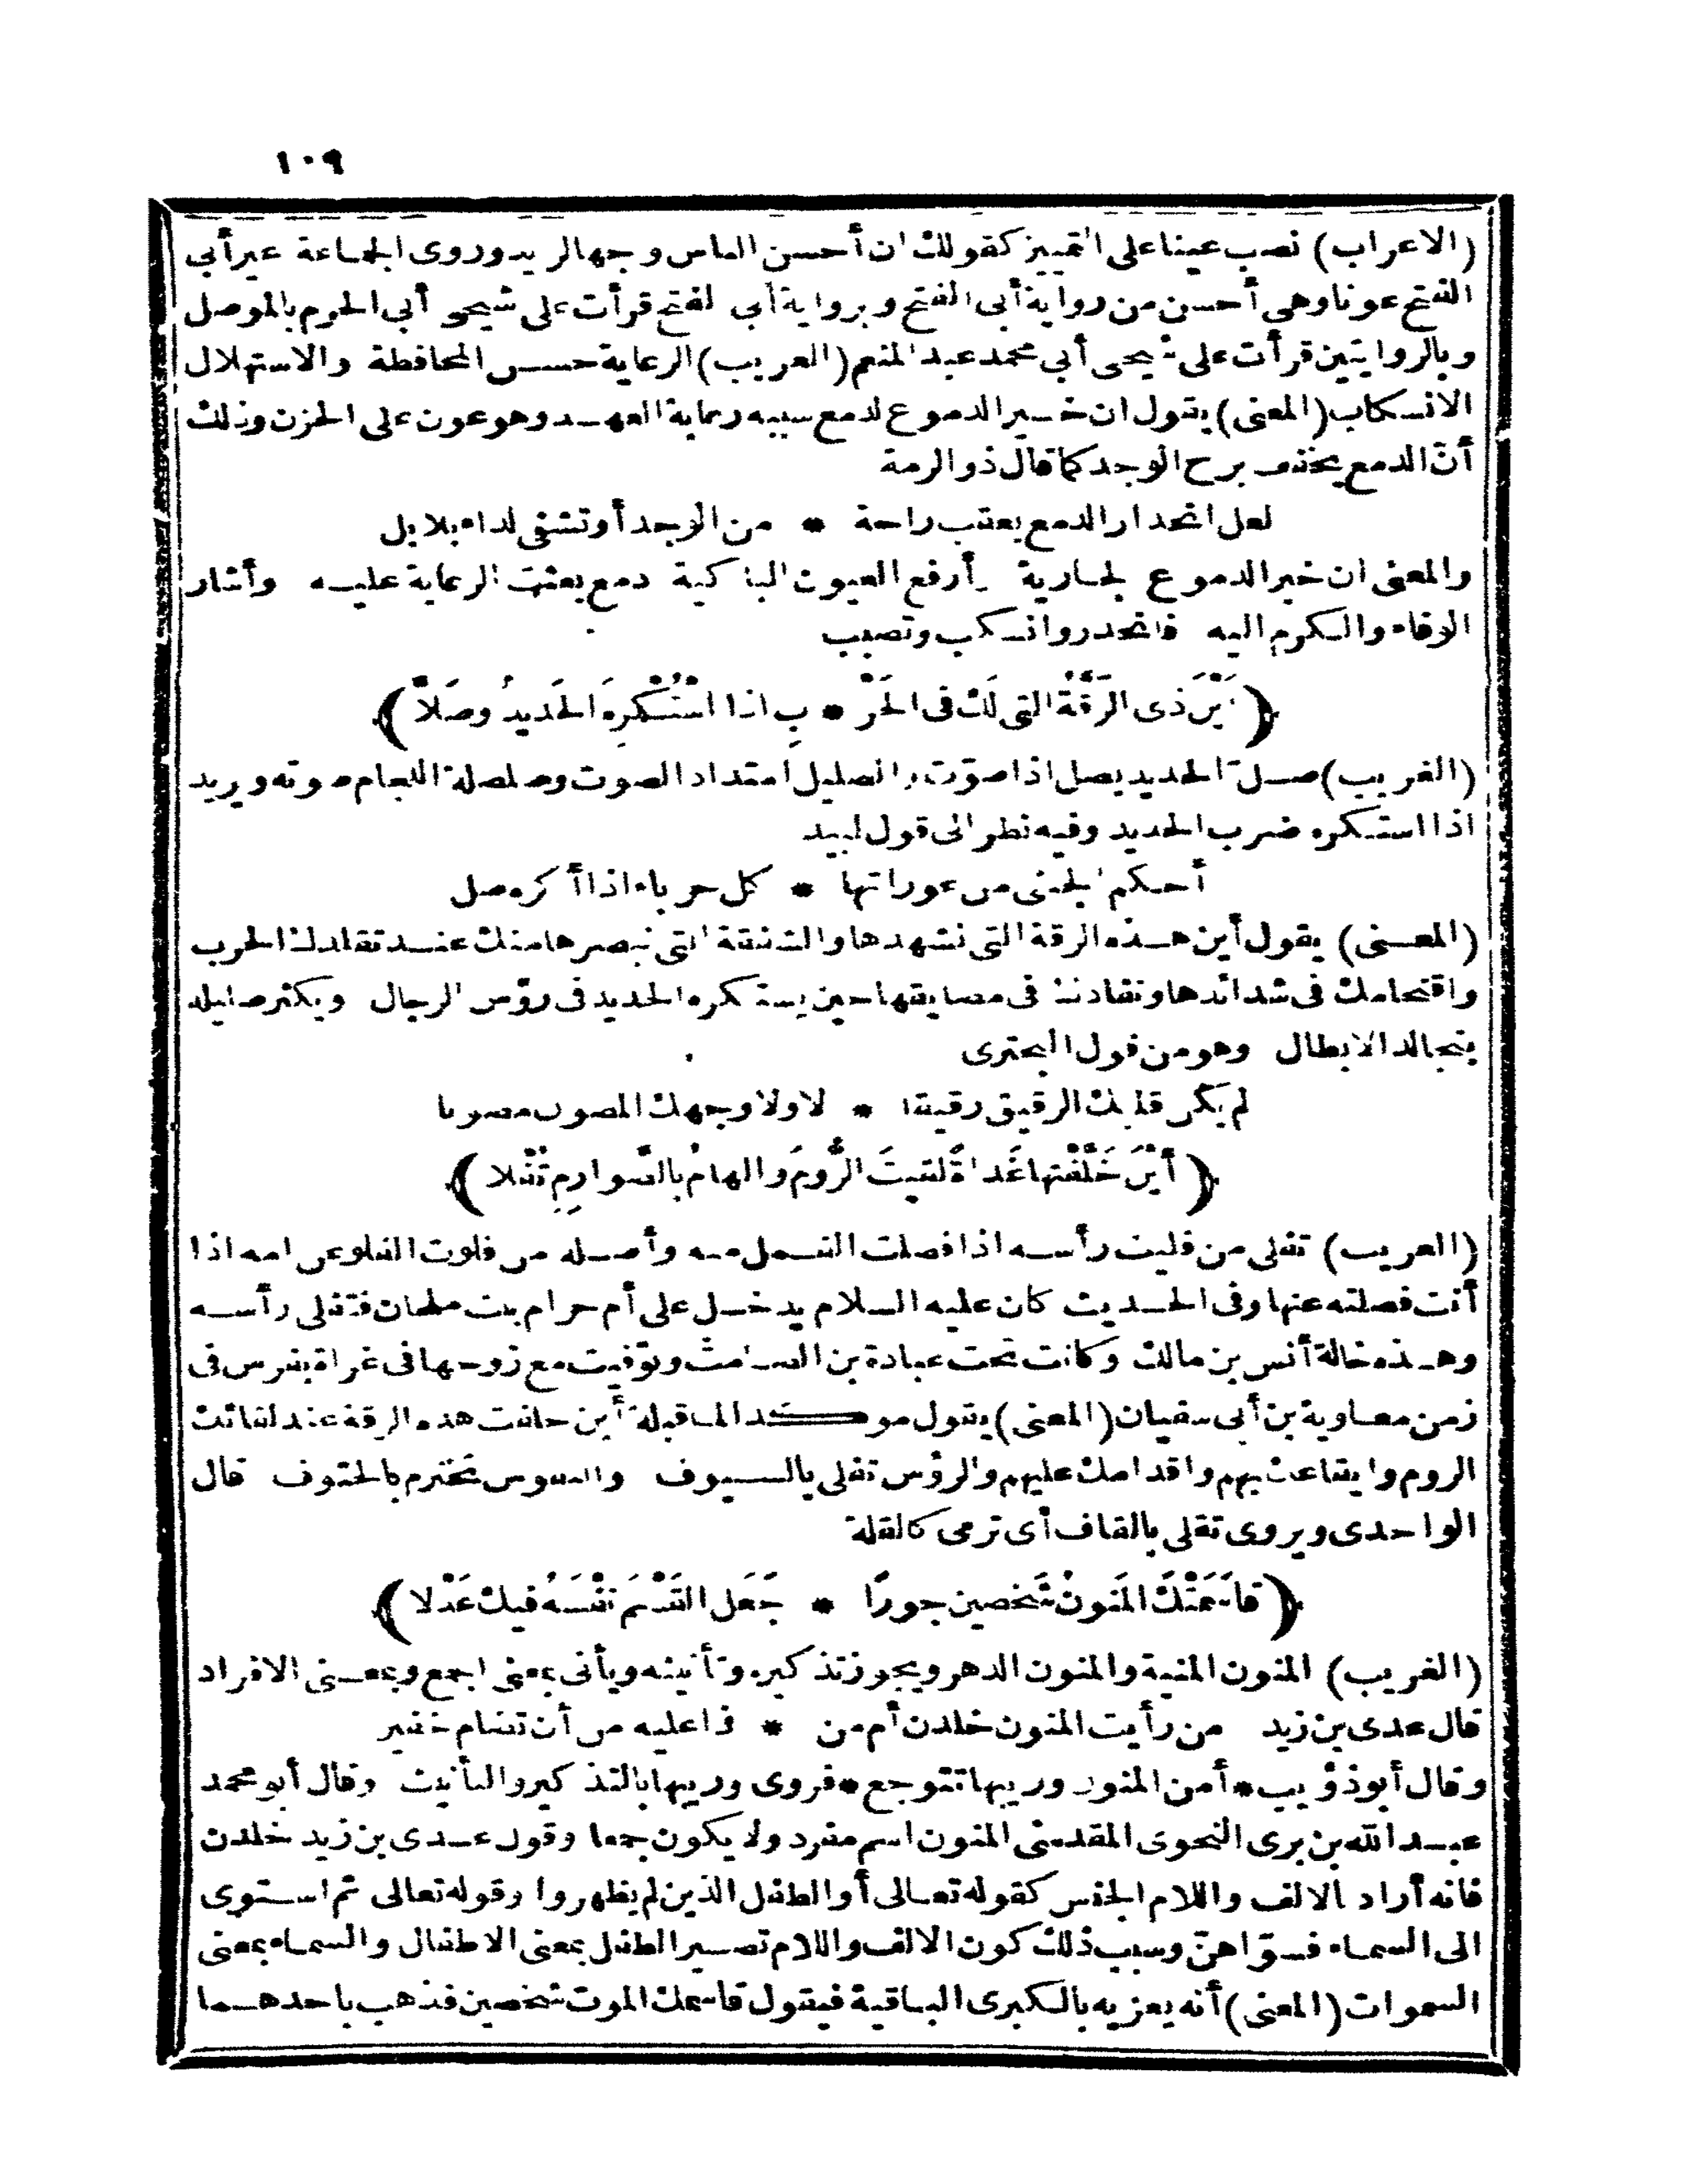 ١٠٩
(الاعراب) نصب عينا على التمييز كقولك ان أحسن الناس وجها لزيد وروى الجماعة غير أبى
الفتح عونا وهى أحسن من رواية أبى الفتح وبرواية أبى الفتح قرأت على شيخى أبى الحرم بالموصل
وبالروايتين قرأت على شيخى أبى محمد عبد المنعم (الغريب) الرعاية حسن المحافظة والاستهلال
الانسكاب (المعنى) يقول ان خير الدموع لدمع سببه رعاية العهد وهو عون على الحزن وذلك
أنّ الدمع يخفف برح الوجد كما قال ذو الرمة
لعل انحدار الدمع يعقب راحة * من الوجد أو تشفى لداء بلابل
والمعنى ان خير الدموع الجارية وأرفع العيون الباكية دمع بعثت الرعاية عليه وأشار
الوفاء والكرم اليه فانحدر وانسكب وتصبب
(أَيْنَ ذى الرِّقَّةُ التى لَكَ فى الحَرْ * بِ اذا اسْتُكْرِهَ الحَديدُ وصَلاَّ)
(الغريب) صلّ الحديد يصل اذا صوّت والصليل امتداد الصوت وصلصلة اللجام صوته ويريد
اذا استكره ضرب الحديد وفيه نظر الى قول لبيد
أحكم الجنثى من عوراتها * كل حرباء اذا أكره صل
(المعنى) يقول أين هذه الرقة التى نشهدها والشفقة التى نبصرها منك عند تقلدك الحرب
واقتحامك فى شدائدها ونفاذك فى مضايقها حين يستكره الحديد فى رؤس الرجال ويكثر صليله
بتجالد الابطال وهو من قول البحترى
لم يكن قلبك الرقيق رقيقا * لا ولا وجهك المصون مصونا
(أَيْنَ خَلَّفْتَها غَداةَ لَقيتَ الرُّومَ والهامُ بالصَّوارِمِ تُفْلا)
(الغريب) تفلى من فليت رأسه اذا فصلت القمل منه وأصله من فلوت الفلو عن امه اذا
أنت فصلته عنها وفى الحديث كان عليه السلام يدخل على أم حرام بنت ملحان فتفلى رأسه
وهذه خالة أنس بن مالك وكانت تحت عبادة بن الصامت وتوفيت مع زوجها فى غزاة بقبرس فى
زمن معاوية بن أبى سفيان (المعنى) يقول مؤكدا لما قبله أين خلفت هذه الرقة عند لقائك
الروم وايقاعك بهم واقدامك عليهم والرؤس تفلى بالسيوف والنفوس تخترم بالحتوف قال
الواحدى ويروى تقلى بالقاف أى ترمى كالقلة
(قاسَمَتْكَ المَنونُ شَخصين جورًا * جَعَل القَسْمَ نفْسَهُ فيك عَدْلا)
(الغريب) المنون المنية والمنون الدهر ويجوز تذكيره وتأنيثه ويأتى بمعنى الجمع وبمعنى الافراد
قال عدى بن زيد من رأيت المنون خلدن أم من * ذا عليه من أن تضام خفير
وقال أبو ذؤيب * أمن المنون وريبها تتوجع * فروى وريبها بالتذكير والتأنيث وقال أبو محمد
عبد الله بن برى النحوى المقدسى المنون اسم مفرد ولا يكون جمعا وقول عدى بن زيد خلدن
فانه أراد بالالف واللام الجنس كقوله تعالى أو الطفل الذين لم يظهروا وقوله تعالى ثم استوى
الى السماء فسوّاهنّ وسبب ذلك كون الالف واللام تصير الطفل بمعنى الاطفال والسماء بمعنى
السموات (المعنى) أنه يعزيه بالكبرى الباقية فيقول قاسمك الموت شخصين فذهب باحدهما